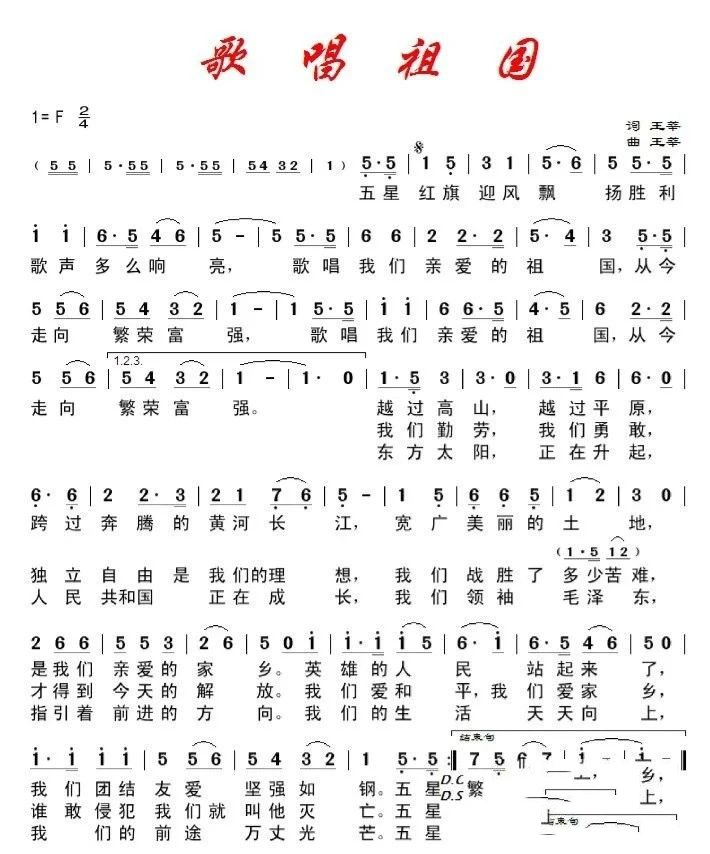 歌唱祖国
1=F 2/4
词 王莘
曲 王莘
( 5 5 | 5·55 | 5·55 | 54 32 | 1 ) 5·5 | 1 5 | 3 1 | 5·6 | 5 5·5 |
五星 红旗 迎风 飘 扬胜利
1 1 | 6·5 4 6 | 5 - | 5 5·5 | 6 6 | 2 2·2 | 5·4 | 3 5·5 |
歌声 多么响 亮, 歌唱 我们 亲爱的 祖 国,从今
5 5 6 | 5 4 3 2 | 1 - | 1 5·5 | 1 1 | 6 6·5 | 4·5 | 6 2·2 |
走向 繁荣富 强, 歌唱 我们 亲爱的 祖 国,从今
1.2.3.
5 5 6 | 5 4 3 2 | 1 - | 1·0 | 1·5 3 | 3·0 | 3·1 6 | 6·0 |
走向 繁荣富 强。 越过高 山, 越过平 原,
我们勤 劳, 我们勇 敢,
东方太 阳, 正在升 起,
6·6 | 2 2·3 | 2 1 7 6 | 5 - | 1 5 | 6 6 5 | 1 2 | 3 0 |
跨过 奔腾的 黄河长 江, 宽广 美丽的 土 地,
(1·5 12)
独立 自由是 我们的理 想, 我们 战胜了 多少苦难,
人民 共和国 正在成 长, 我们 领袖 毛泽 东,
2 6 6 | 5 5 3 | 2 6 | 5 0 1 | 1·1 1 5 | 6·1 | 6·5 4 6 | 5 0 |
是我们 亲爱的 家 乡。英雄的人 民 站起来 了,
才得到 今天的 解 放。我们爱和 平,我们爱家 乡,
指引着 前进的 方 向。我们的生 活 天天向 上,
结束句
1·1 1 1 | 5 5 6 | 5 4 3 2 | 1 5·5 :| 7 5 6 7 | 1 - | 1 - ‖
我们 团结 友爱 坚强如 钢。五星 D.C 繁 乡,
谁敢侵犯 我们就 叫他灭 亡。五星 D.S 上,
我 们的前途 万丈光 芒。五星
结束句